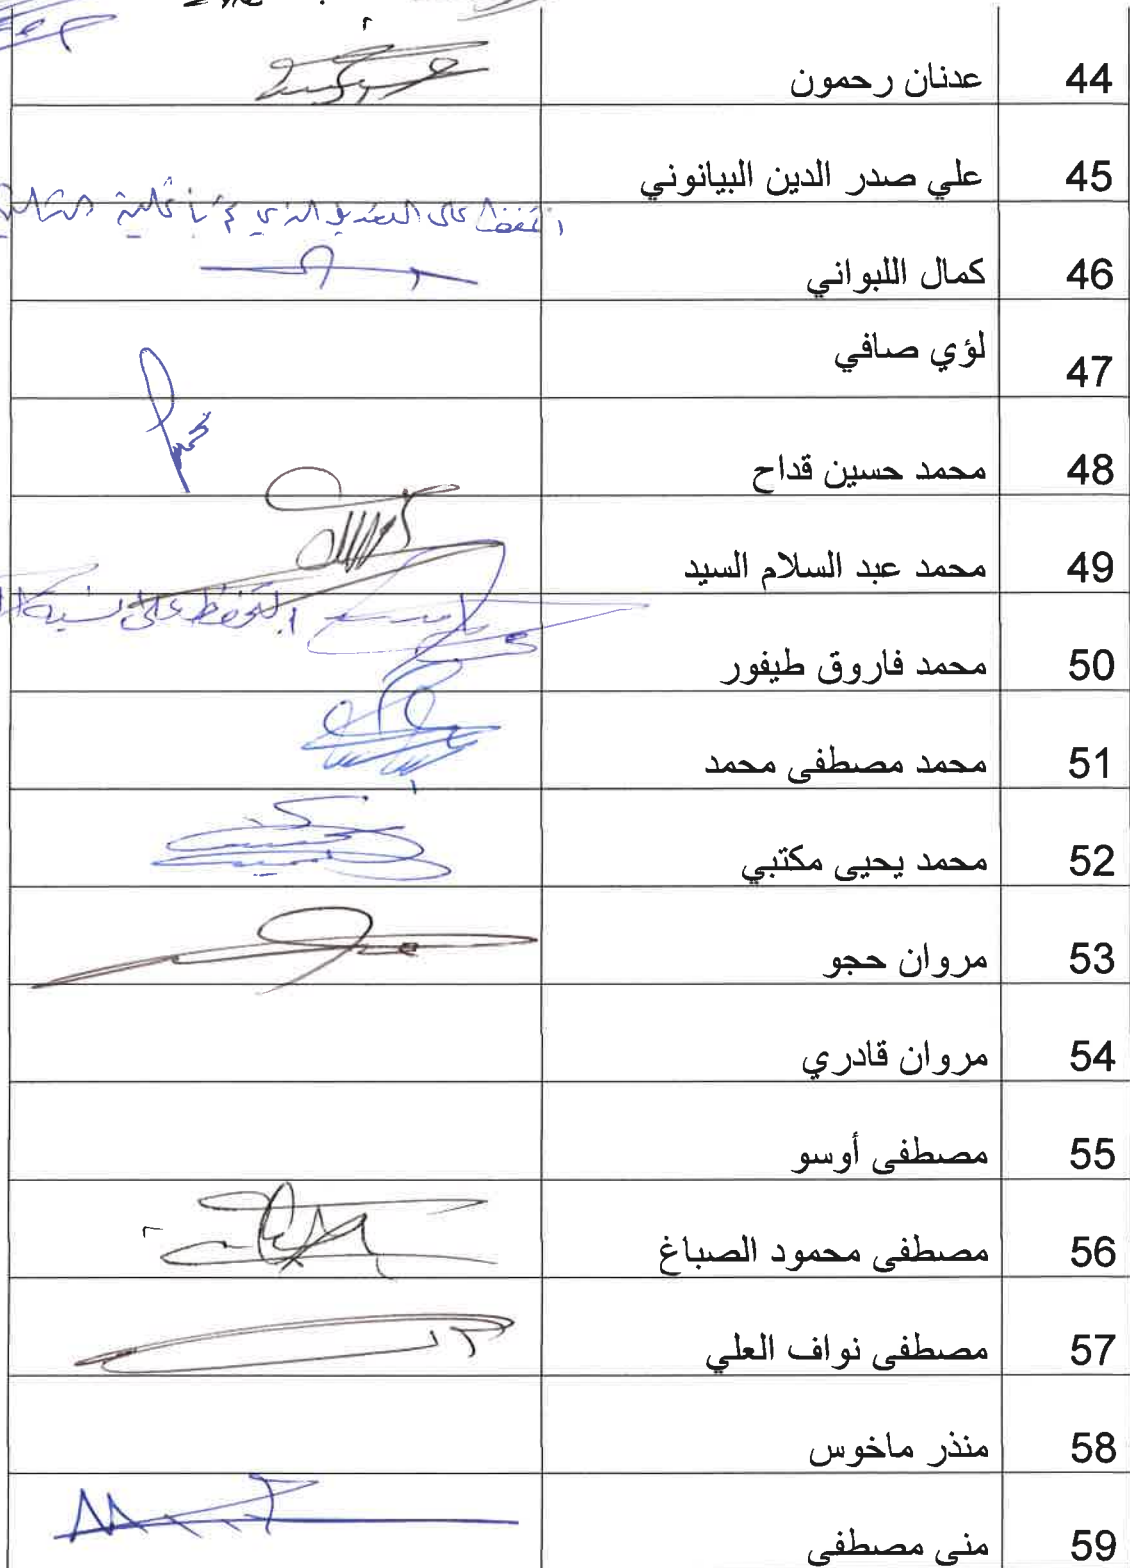 44 عدنان رحمون
45 علي صدر الدين البيانوني
46 كمال اللبواني
47 لؤي صافي
48 محمد حسين قداح
49 محمد عبد السلام السيد
50 محمد فاروق طيفور
51 محمد مصطفى محمد
52 محمد يحيى مكتبي
53 مروان حجو
54 مروان قادري
55 مصطفى أوسو
56 مصطفى محمود الصباغ
57 مصطفى نواف العلي
58 منذر ماخوس
59 منى مصطفى